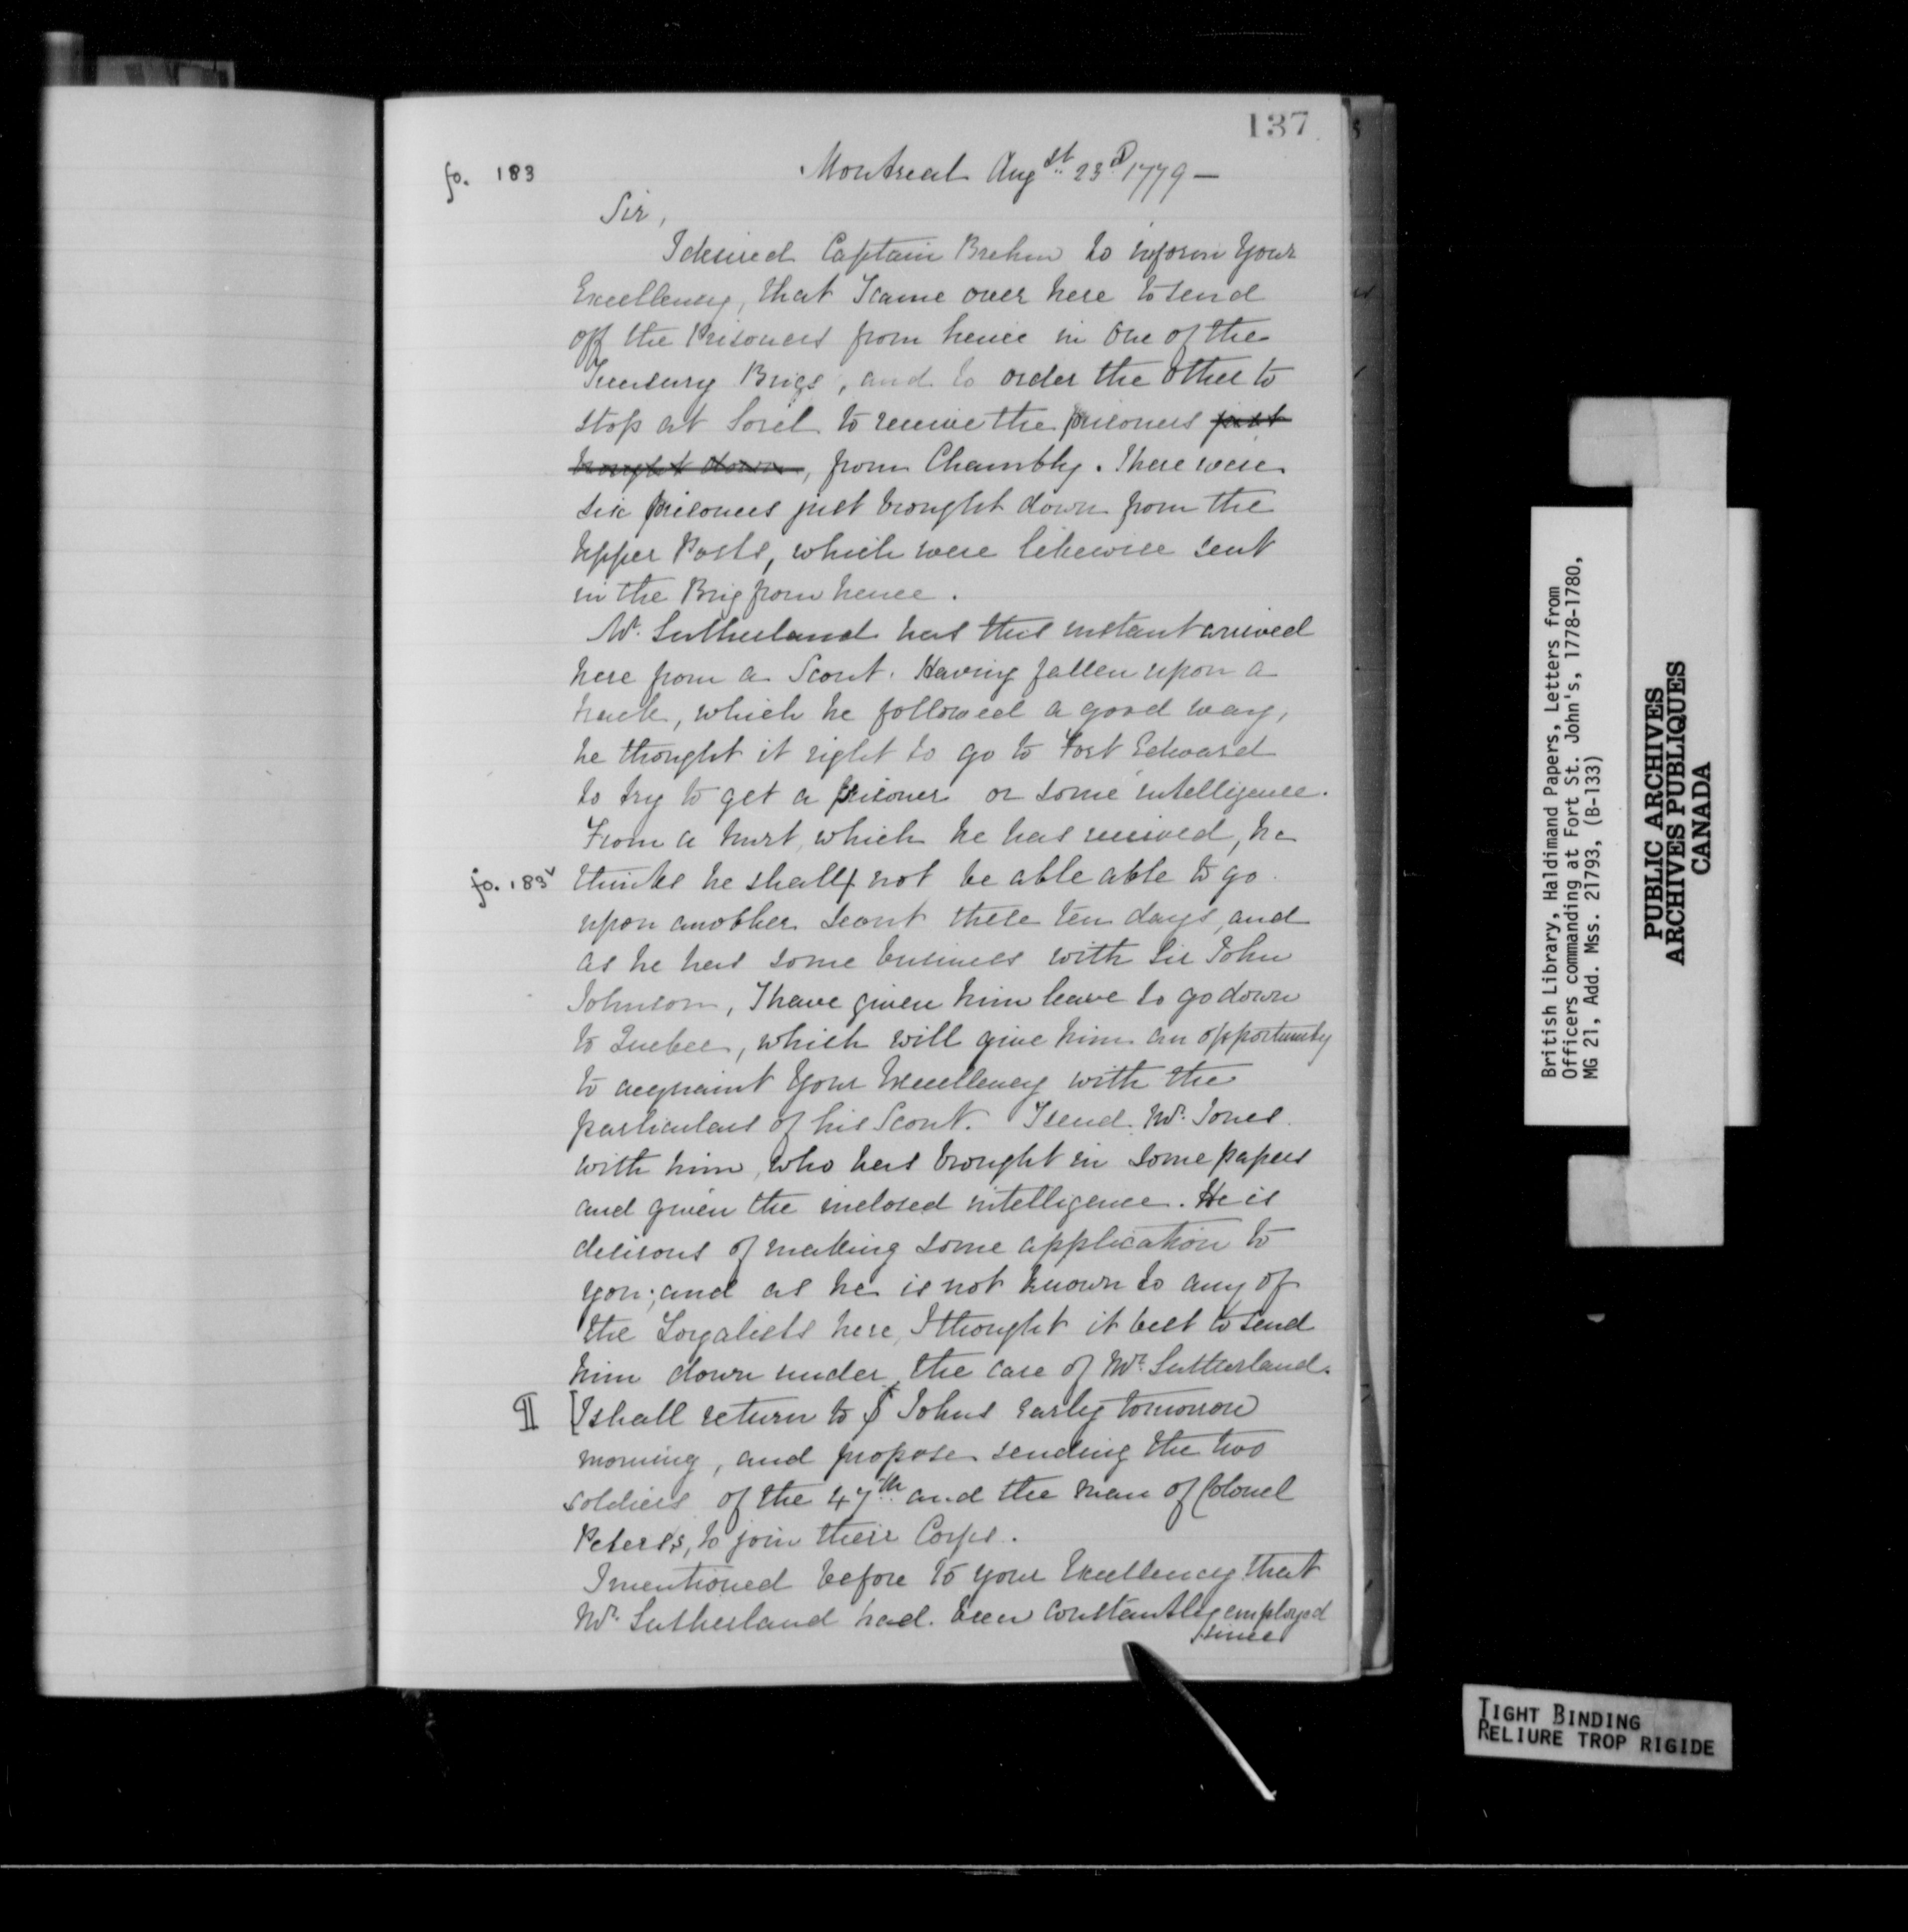 137
fo. 183
Montreal Augst. 23d. 1779 —
Sir,
I desired Captain Brehm to inform Your
Excellency, that I came over here to send
off the Prisoners from hence in One of the
Treasury Brigs, and to order the other to
stop at Sorel to receive the prisoners just
brought down, from Chambly. There were
six prisoners just brought down from the
Upper Posts, which were likewise sent
in the Brig from hence.
Mr. Sutherland has this instant arrived
here from a Scout. Having fallen upon a
track, which he followed a good way,
he thought it right to go to Fort Edward
to try to get a prisoner or some intelligence.
From a hurt, which he has received, he
fo. 183v
thinks he shall not be able able to go
upon another scout these ten days, and
as he has some business with Sir John
Johnson, I have given him leave to go down
to Quebec, which will give him an opportunity
to acquaint Your Excellency with the
particulars of his Scout. I send Mr. Jones
with him, who has brought in some papers
and given the inclosed intelligence. He is
desirous of making some application to
you; and as he is not known to any of
the Loyalists here, I thought it best to send
him down under the care of Mr. Sutherland.
¶ [I shall return to St Johns early tomorrow
morning, and propose sending the two
soldiers of the 47th. and the man of Colonel
Peters's, to join their Corps.
I mentioned before to your Excellency that
Mr. Sutherland had been constantly employed
since
British Library, Haldimand Papers, Letters from
Officers commanding at Fort St. John's, 1778-1780,
MG 21, Add. Mss. 21793, (B-133)
PUBLIC ARCHIVES
ARCHIVES PUBLIQUES
CANADA
TIGHT BINDING
RELIURE TROP RIGIDE